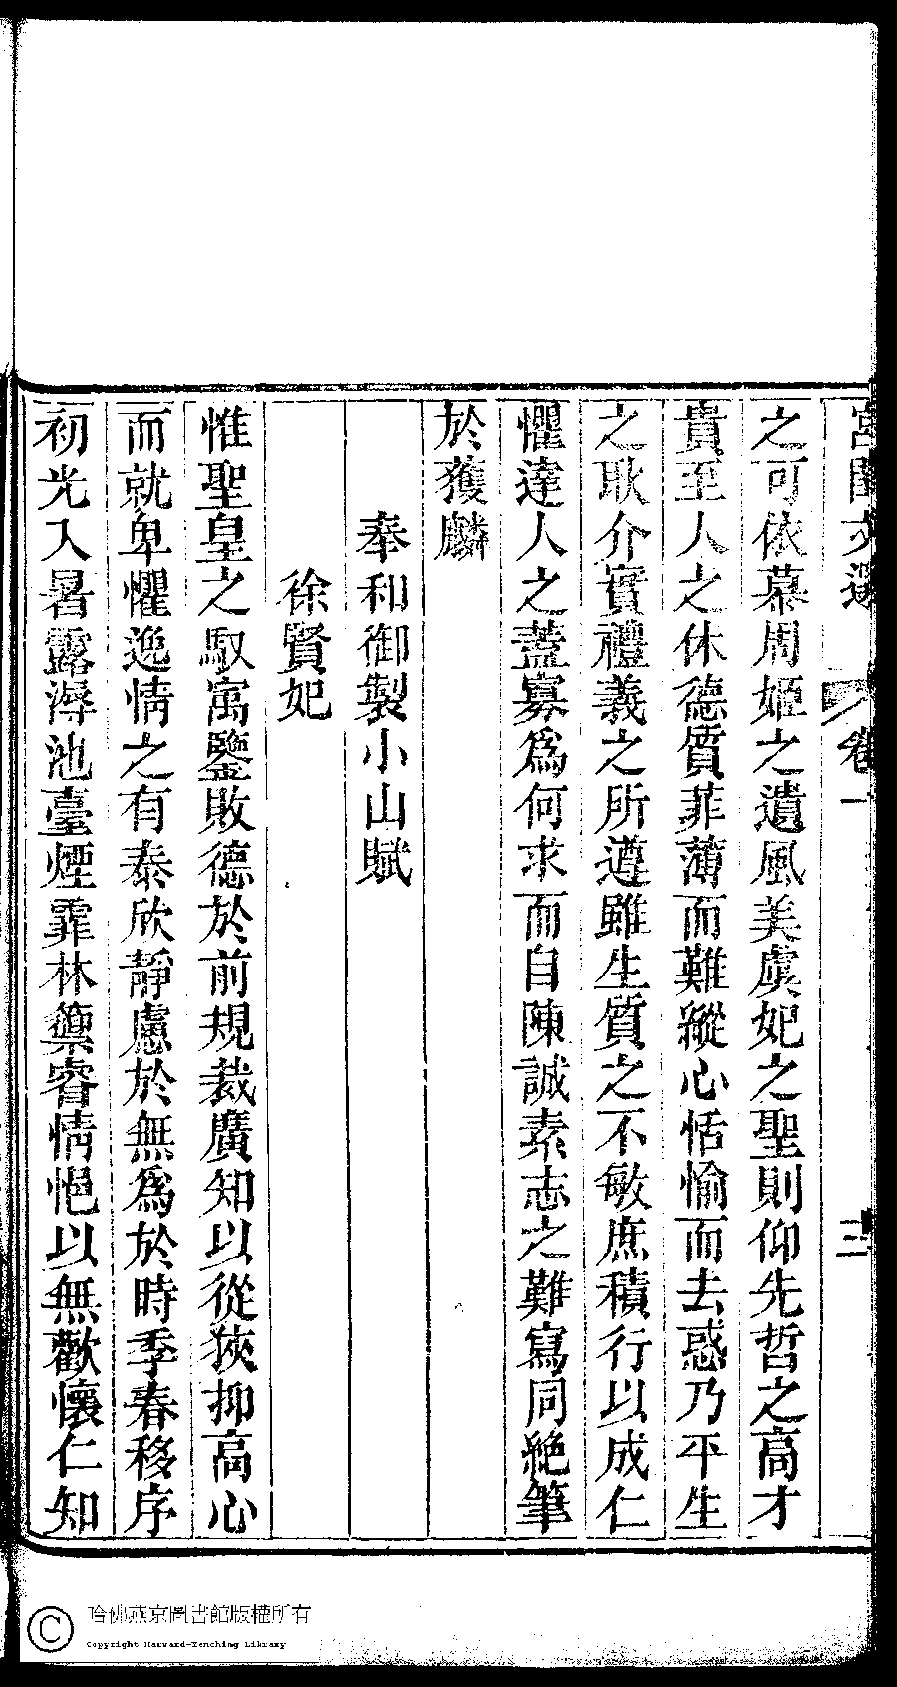 宮閨文選 卷一 三
之可依慕周姬之遺風美虞妃之聖則仰先哲之高才
貴至人之休德質菲薄而難蹤心恬愉而去惑乃平生
之耿介實禮義之所遵雖生質之不敏庶積行以成仁
懼達人之蓋寡為何求而自陳誠素志之難寫同絕筆
於獲麟
奉和御製小山賦
徐賢妃
惟聖皇之馭寓鑒敗德於前規裁廣知以從狹抑高心
而就卑懼逸情之有泰欣靜慮於無為於時季春移序
初光入暑露溽池臺煙霏林籞睿情悒以無歡懷仁知
哈佛燕京圖書館版權所有
Copyright Harvard-Yenching Library